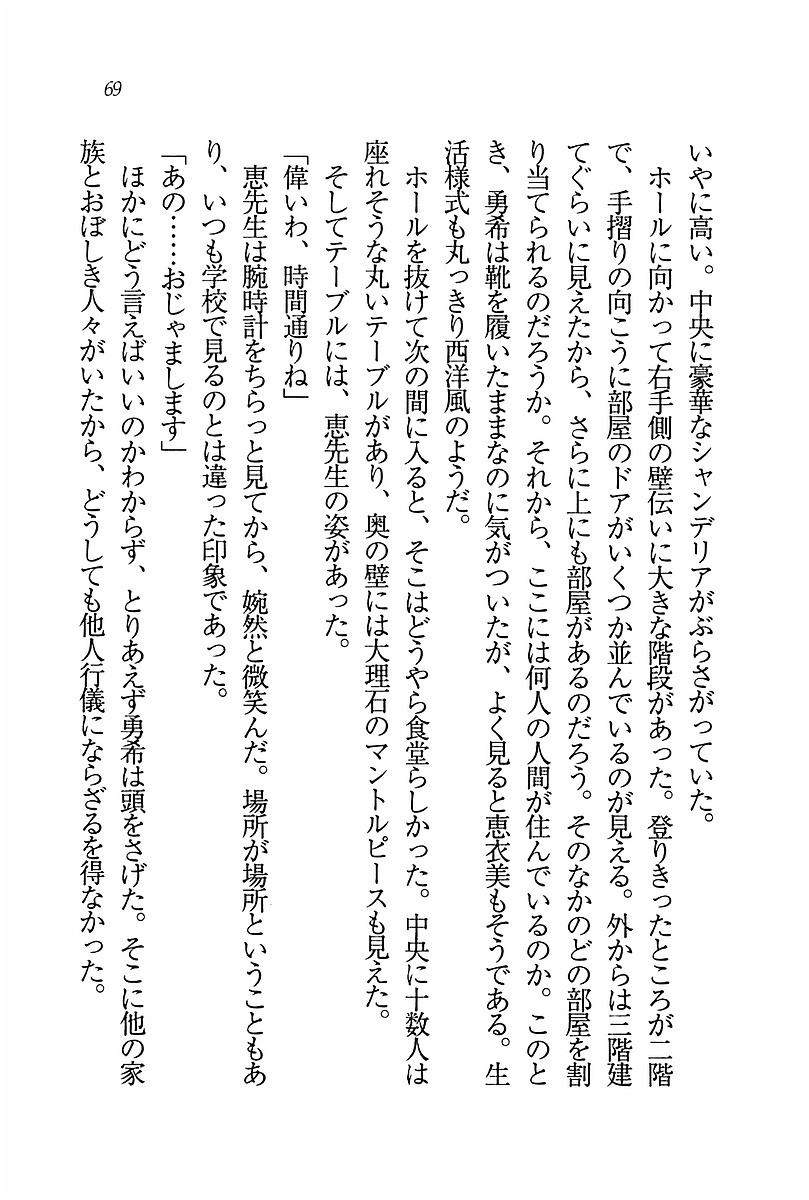 69
いやに高い。中央に豪華なシャンデリアがぶらさがっていた。
　ホールに向かって右手側の壁伝いに大きな階段があった。登りきったところが二階
で、手摺りの向こうに部屋のドアがいくつか並んでいるのが見える。外からは三階建
てぐらいに見えたから、さらに上にも部屋があるのだろう。そのなかのどの部屋を割
り当てられるのだろうか。それから、ここには何人の人間が住んでいるのか。このと
き、勇希は靴を履いたままなのに気がついたが、よく見ると恵衣美もそうである。生
活様式も丸っきり西洋風のようだ。
　ホールを抜けて次の間に入ると、そこはどうやら食堂らしかった。中央に十数人は
座れそうな丸いテーブルがあり、奥の壁には大理石のマントルピースも見えた。
　そしてテーブルには、恵先生の姿があった。
「偉いわ、時間通りね」
　恵先生は腕時計をちらっと見てから、婉然と微笑んだ。場所が場所ということもあ
り、いつも学校で見るのとは違った印象であった。
「あの……おじゃまします」
　ほかにどう言えばいいのかわからず、とりあえず勇希は頭をさげた。そこに他の家
族とおぼしき人々がいたから、どうしても他人行儀にならざるを得なかった。